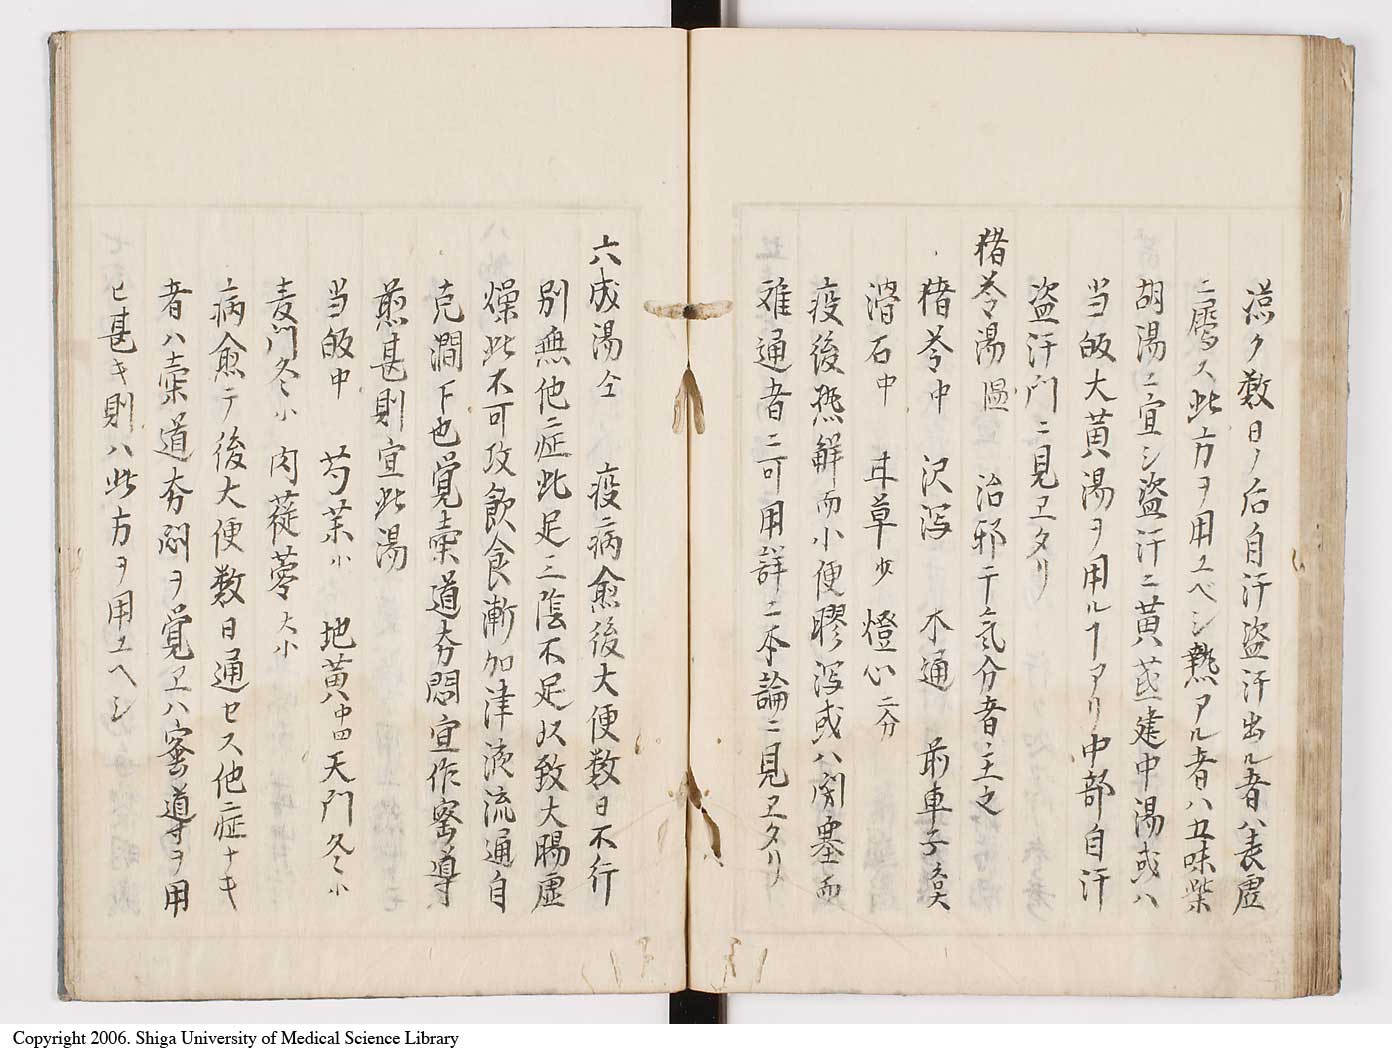 瀉ク数日ノ后自汗盗汗出ル者ハ表虚
ニ属ス此方ヲ用ユベシ熱アル者ハ五味柴
胡湯ニ宜シ盗汗ニ黄芪建中湯或ハ
当皈大黄湯ヲ用ルヿアリ中部自汗
盗汗門ニ見ヱタリ
猪苓湯温 治邪干気分者主之
猪苓中 沢瀉 木通 前車子各大
滑石中 甘草少 燈心二分
疫後熱解而小便膠瀉或ハ閉塞而
难通者ニ可用詳ニ本論ニ見ヱタリ
六成湯仝 疫病愈後大便数日不行
別無他症此足三陰不足以致大腸虚
燥此不可攻飲食漸加津液流通自
克潤下也覚壷道夯悶宜作蜜導
煎甚則宜此湯
当皈中 芍薬小 地黄中四 天門冬小
麦門冬小 肉蓯蓉大小
病愈テ後大便数日通セス他症ナキ
者ハ壷道夯悶ヲ覚ヱハ蜜導ヲ用
ヒ甚キ則ハ此方ヲ用ユヘシ
Copyright 2006. Shiga University of Medical Science Library